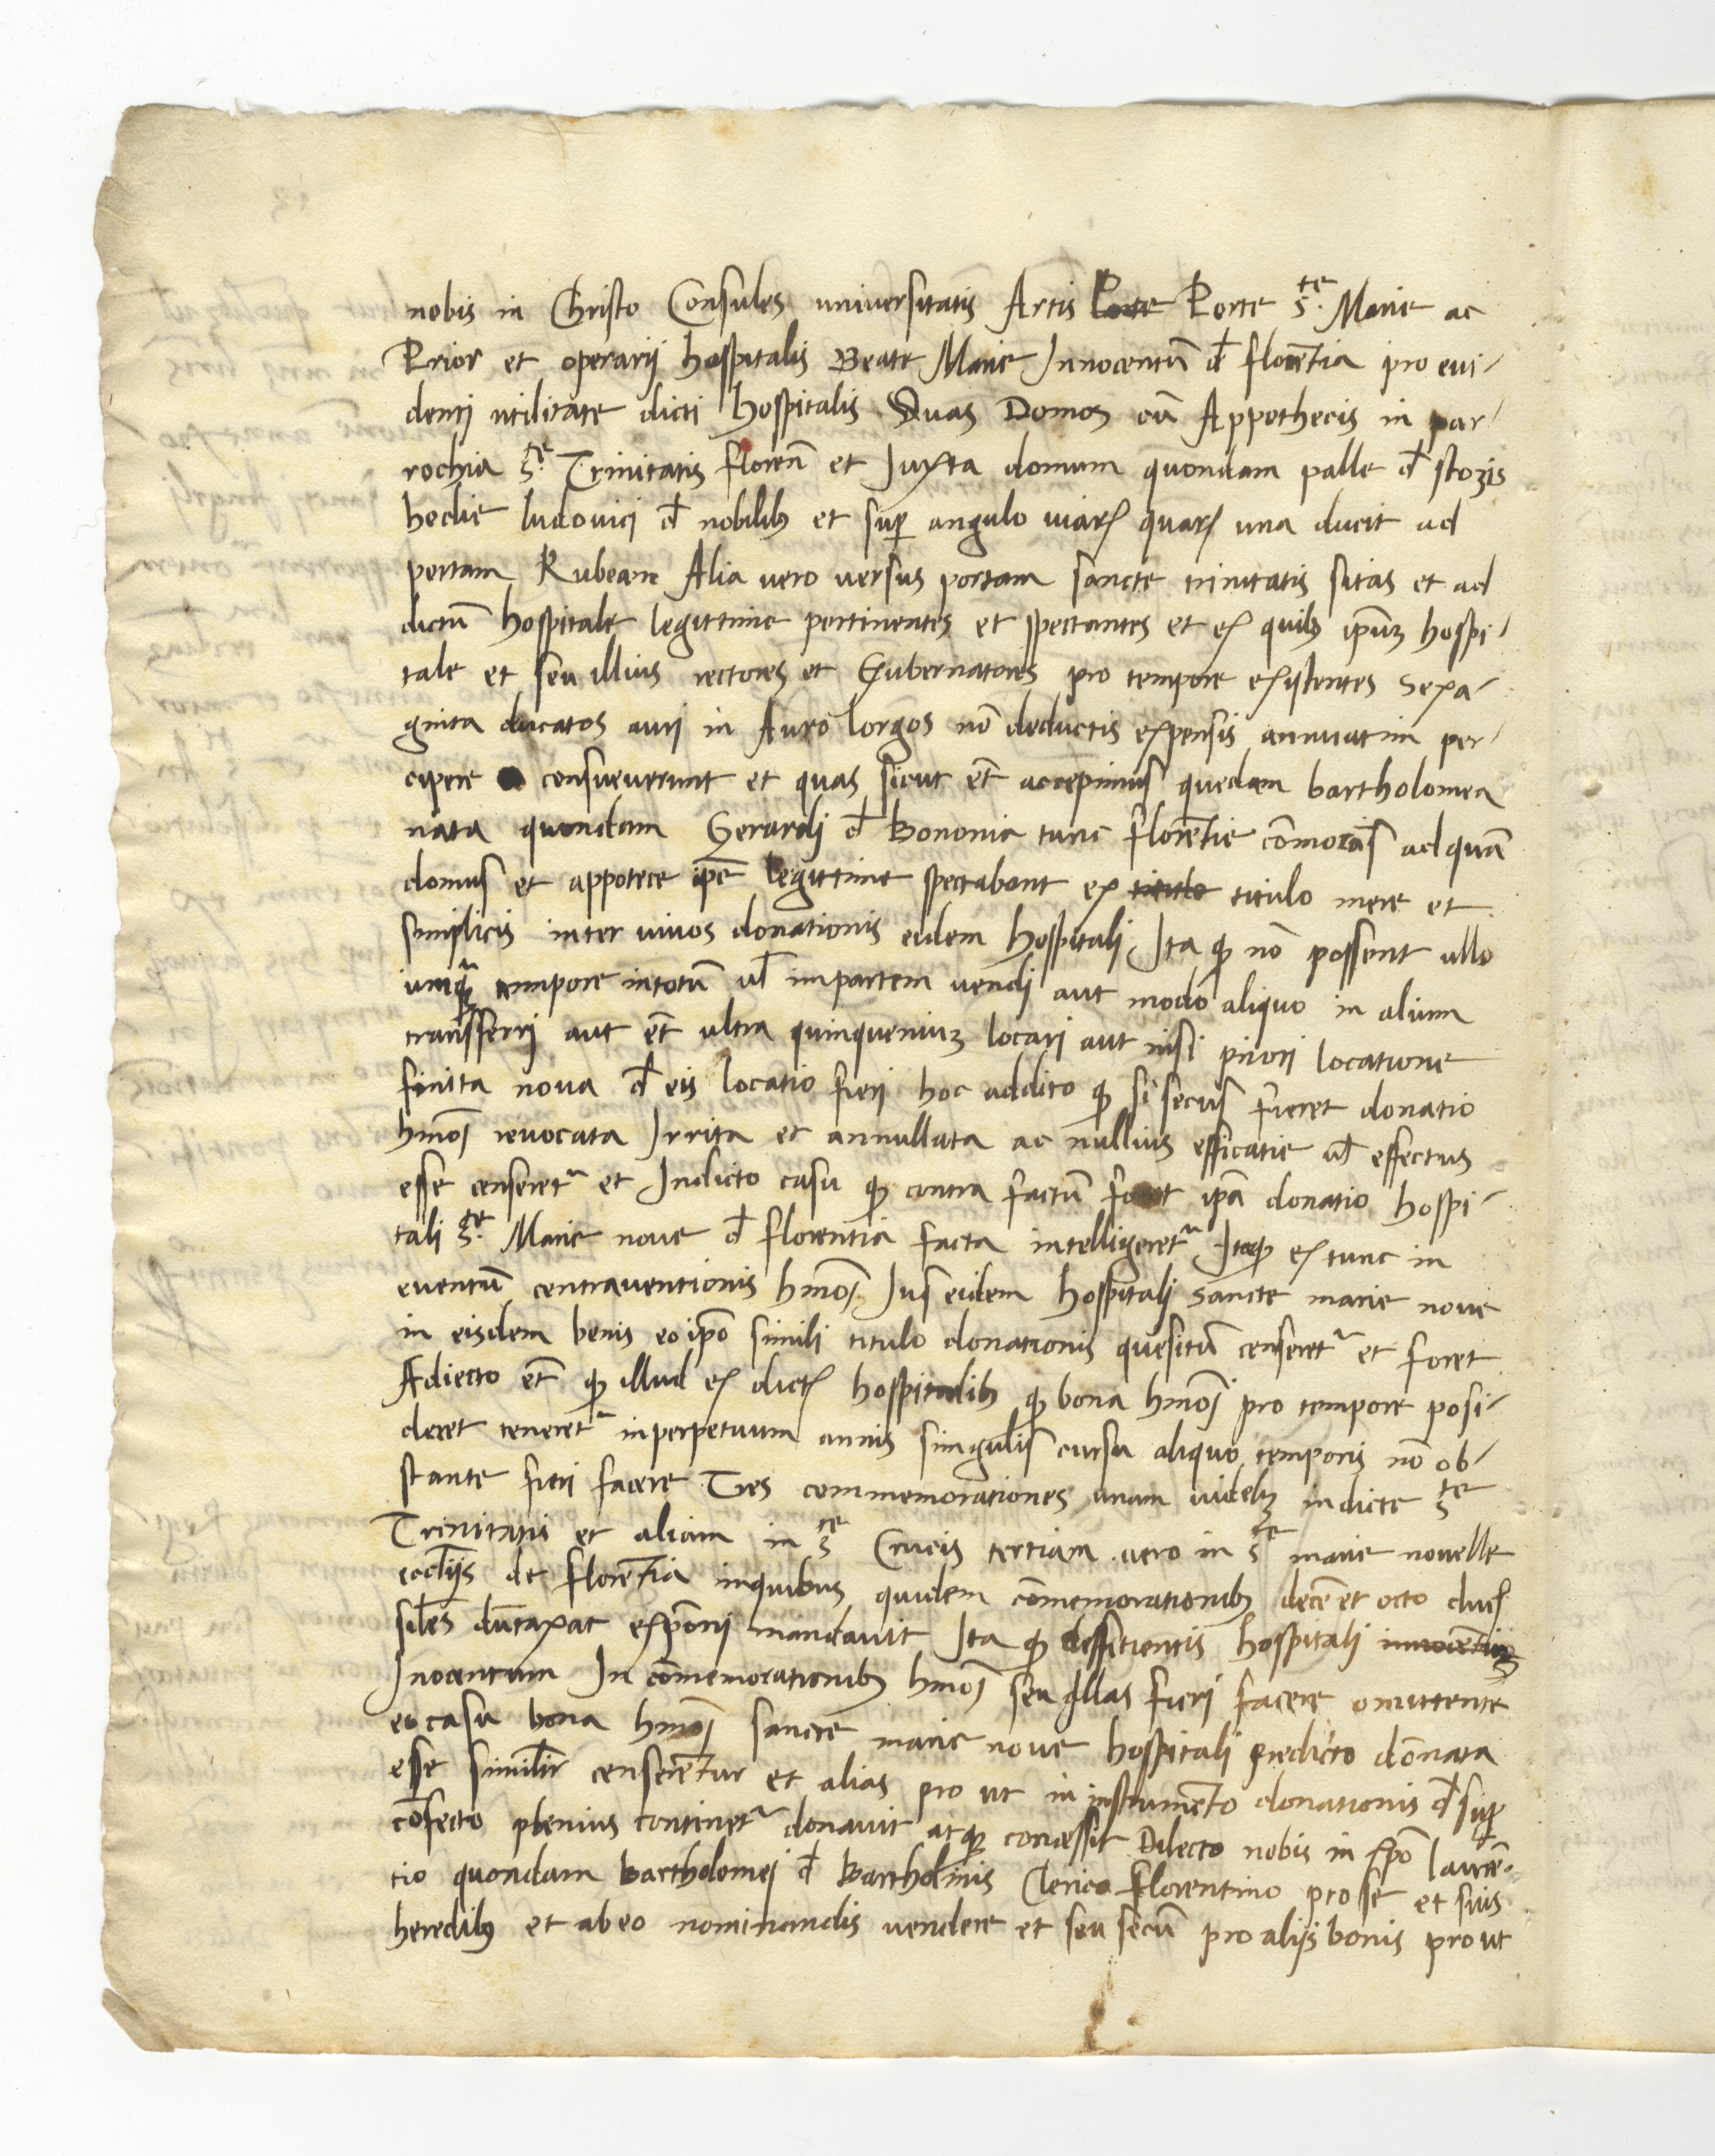 nobis in Christo Consules universitatis Artis Porte Porte Sᵗᵉ. Marie ac
Prior et operarij hospitalis Beate Marie Innocentū đ florētia pro evi-
denti utilitate dicti hospitalis Duas Domos cū Appothecis in par-
rochia Sᵗᵉ. Trinitatis florēn et Juxta domum quondam palle đ strozis
hodie ludovici đ nobilibꝫ et suꝑ angulo viarꝝ quarꝝ una ducit ad
portam Rubeam Alia vero versus portam sancte trinitatis sitas et ad
dictū hospitale legittime pertinentes et spectantes et ex quibꝫ ip̄uꝫ hospi-
tale et seu illius rectores et Gubernatores pro tempore existentes sexa-
ginta ducatos auri in Auro lorgos nō deductis expensis annuatim per-
cipere consueverunt et quas sicut et̄ accepimus quedam bartholomea
nata quondam Gerardi đ Bononia tunc florētie cōmorās ad quā
domus et appotece ip̄e legittime spectabant ex titulo titulo mere et
simplicis inter vivos donationis eidem hospitali Ita ꝙ nō possent ullo
unqꝫ̄ tempore intotū vł impartem vendi aut modo aliquo in alium
transferri aut et̄ ultra quinqueniuꝫ locari aut nisi priori locatione
finita nova đ eis locatio fieri hoc addito ꝙ si secus fieret donatio
hmōi revocata Irrita et annullata ac nullius efficatie vł effectus
esse censeretᵘ et Indicto casu ꝙ contra factū foret ip̄a donatio hospi-
tali Sᵗᵉ. Marie nove đ florentia facta intelligeretᵘ Itaꝙ ex tunc in
eventū contraventionis hmōi Jus eidem hospitali sancte marie nove
in eisdem bonis eo ip̄o simili titulo donationis quesitū censeretᵘ et foret
Adiecto et̄ ꝙ illud ex dictꝭ hospitalibꝫ ꝙ bona hmōi pro tempore posi-
deret teneretᵘ inperpetuum annis singulis cursu aliquo temporis nō ob-
stante fieri facere Tres commemorationes unam videlꝫ in dicte Sᵗᵉ
Trinitatis et aliam in Sᵗᵉ Crucis tertiam vero in Sᵗᵉ marie novelle
ecctijs de florētia inquibus quidem cōmemorationibꝫ decē et octo
siłes dūtaxat expōni mandavit Ita ꝙ defficientis hospitali innocētiuꝫ
Inocentum In cōmemorationibꝫ hmōi seu illas fieri facere omittente
eo casu bona hmōi sancte marie nove hospitali predicto donata
esse similir censerētur et alias pro ut in instrumēto donationis đ suꝑ
cōfecto plenius continetᵘ donavit atqꝫ concessit Dilecto nobis in xp̄o laurē-
tio quondam Bartholomei đ Bartholinis Clerico florentino pro se et suis
heredibꝫ et ab eo nominandis vendere et seu secū pro alijs bonis prout